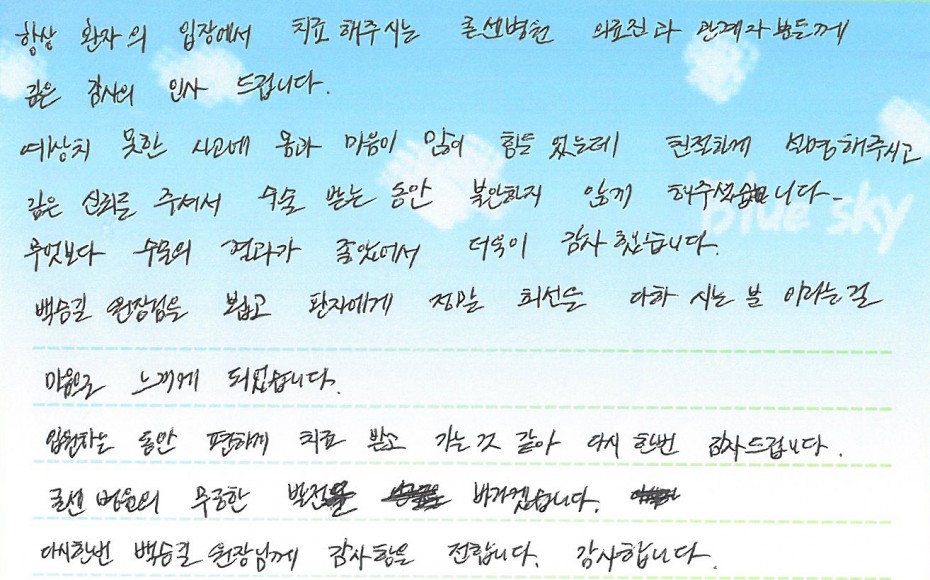 항상 환자의 입장에서 치료해주시는 굳센병원 의료진과 관계자분들께
깊은 감사의 인사 드립니다.
예상치 못한 사고에 몸과 마음이 많이 힘들었는데 친절하게 설명해주시고
깊은 신뢰를 주셔서 수술 받는 동안 불안하지 않게 해주셨습니다.
blue sky
무엇보다 수술의 결과가 좋았어서 더욱이 감사했습니다.
백승길 원장님을 뵙고 환자에게 정말 최선을 다하시는 분이라는걸
마음으로 느끼게 되었습니다.
입원하는 동안 편하게 치료 받고 가는것 같아 다시 한번 감사드립니다.
굳센병원의 무궁한 발전을 바라겠습니다.
다시한번 백승길 원장님께 감사함을 전합니다. 감사합니다.